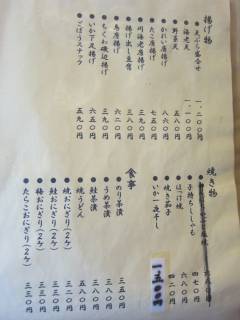 揚げ物
天ぷら盛合せ 一、二〇〇円
海老天 一、一〇〇円
野菜天 五八〇円
かれい唐揚げ 五八〇円
たこ唐揚げ 七五〇円
川海老唐揚げ 三九〇円
揚げ出し豆腐 三九〇円
鳥唐揚げ 六二〇円
ちくわ磯辺揚げ 三八〇円
いか下足揚げ 六五〇円
ごぼうスナック 五九〇円
焼き物
子持ちししゃも 四七〇円
ほっけ焼 六八〇円
焼き茄子 四二〇円
いか一夜干し
食事
のり茶漬 三五〇円
うめ茶漬 三八〇円
鮭茶漬 三八〇円
焼うどん 五八〇円
焼おにぎり(2ケ) 三二〇円
鮭おにぎり(2ケ) 三三〇円
梅おにぎり(2ケ) 三三〇円
たらこおにぎり(2ケ) 三三〇円